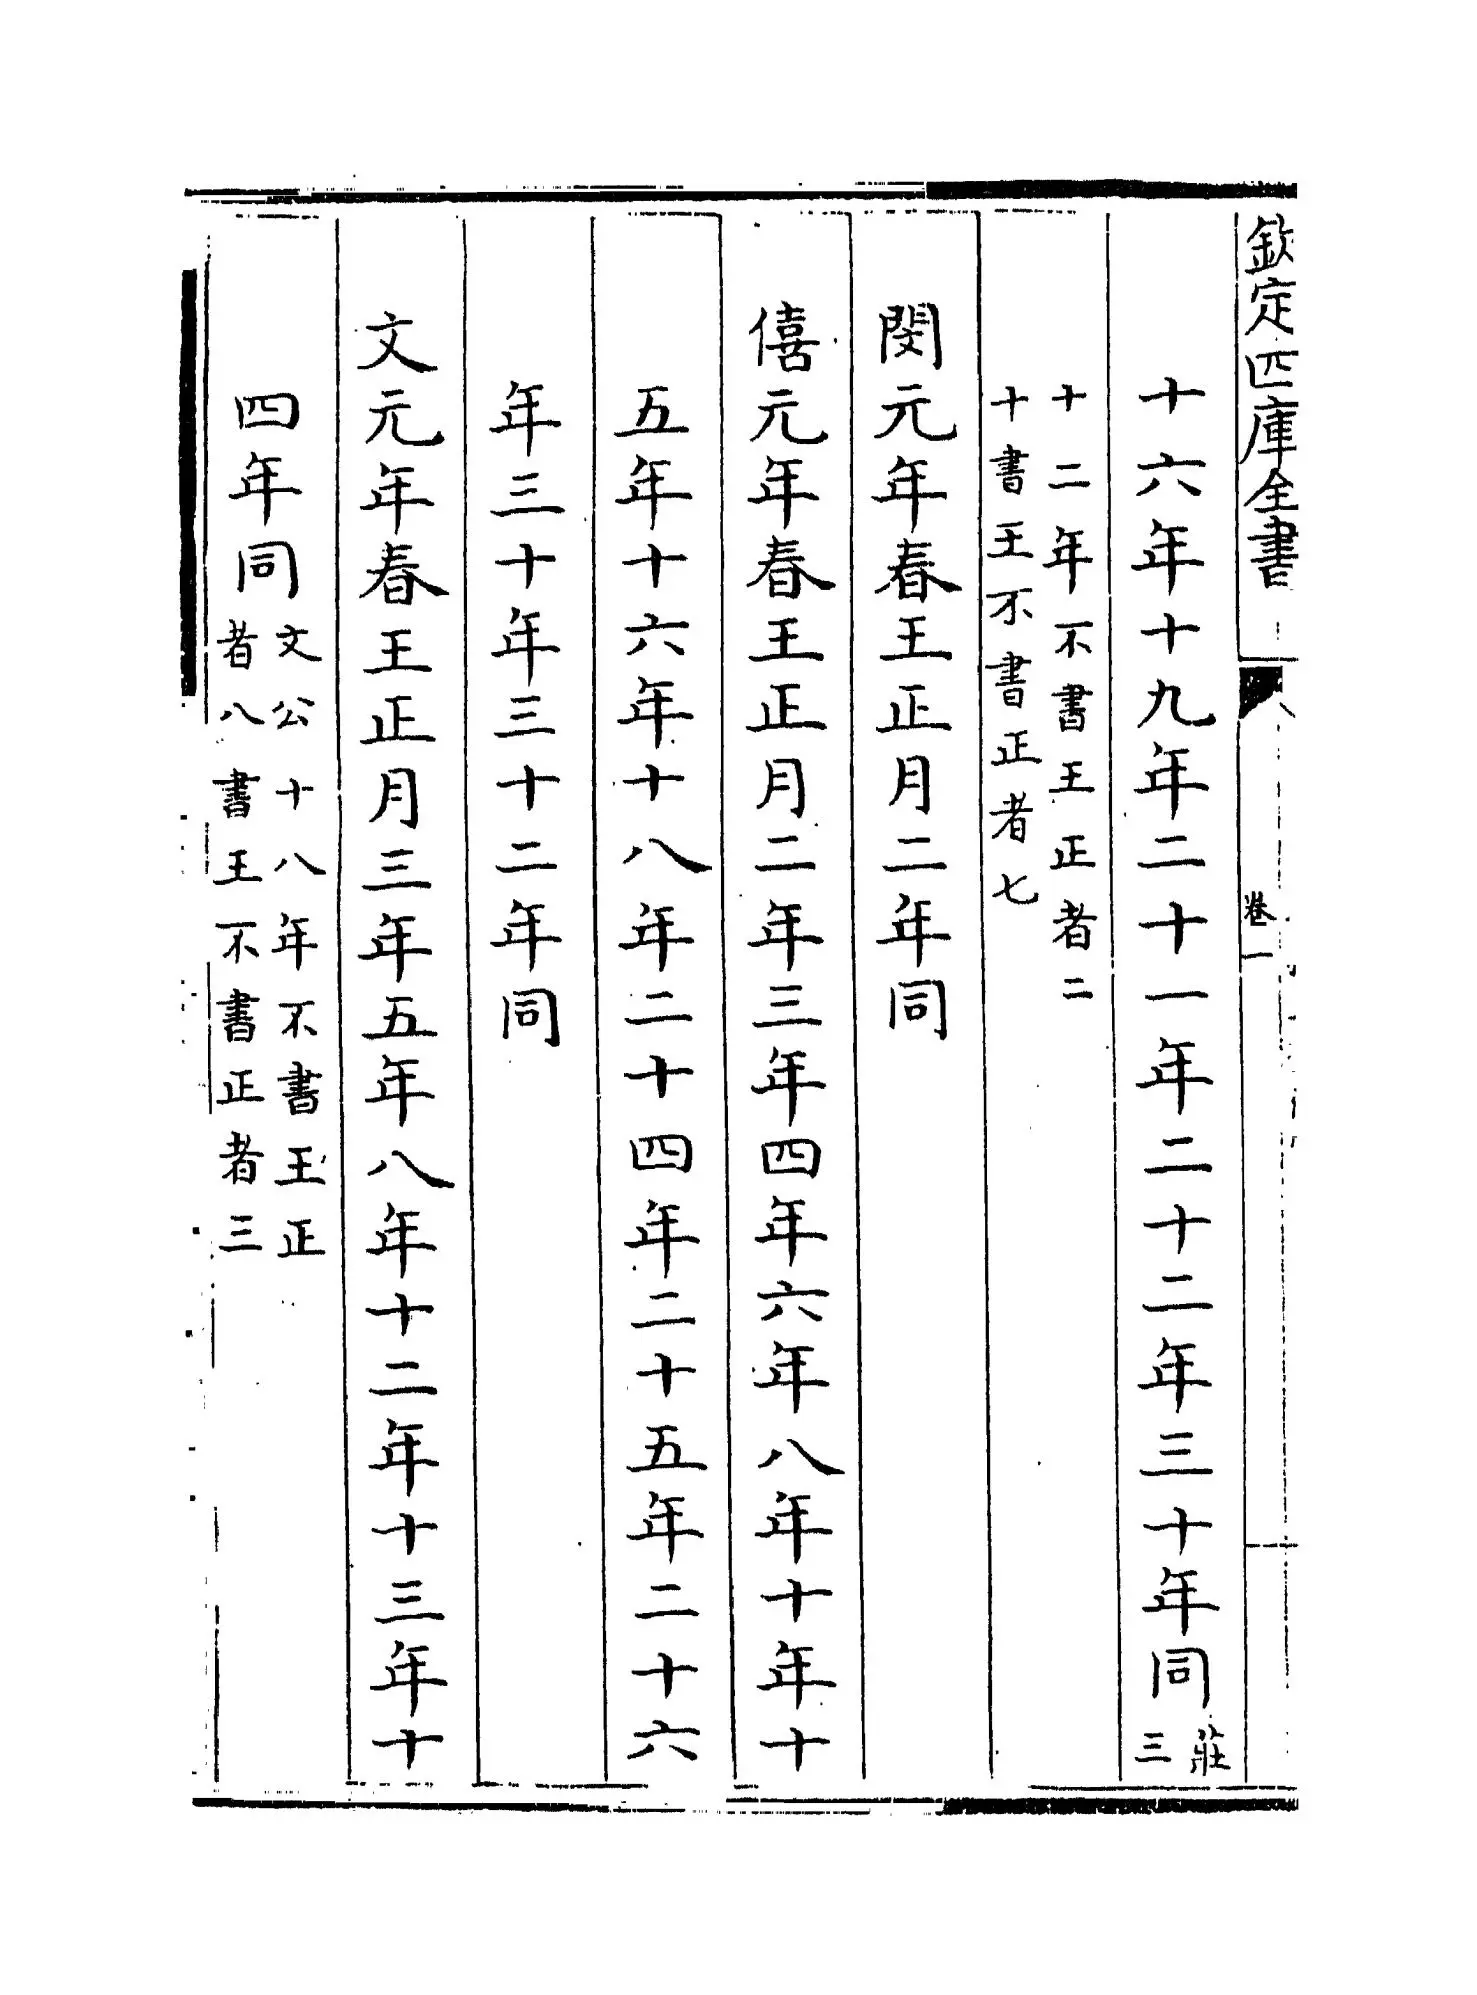 欽定四庫全書
卷一
十六年十九年二十一年二十二年三十年同莊三
十二年不書王正者二
十書王不書正者七
閔元年春王正月二年同
僖元年春王正月二年三年四年六年八年十年十
五年十六年十八年二十四年二十五年二十六
年三十年三十二年同
文元年春王正月三年五年八年十二年十三年十
四年同
文公十八年不書王正
者八書王不書正者三